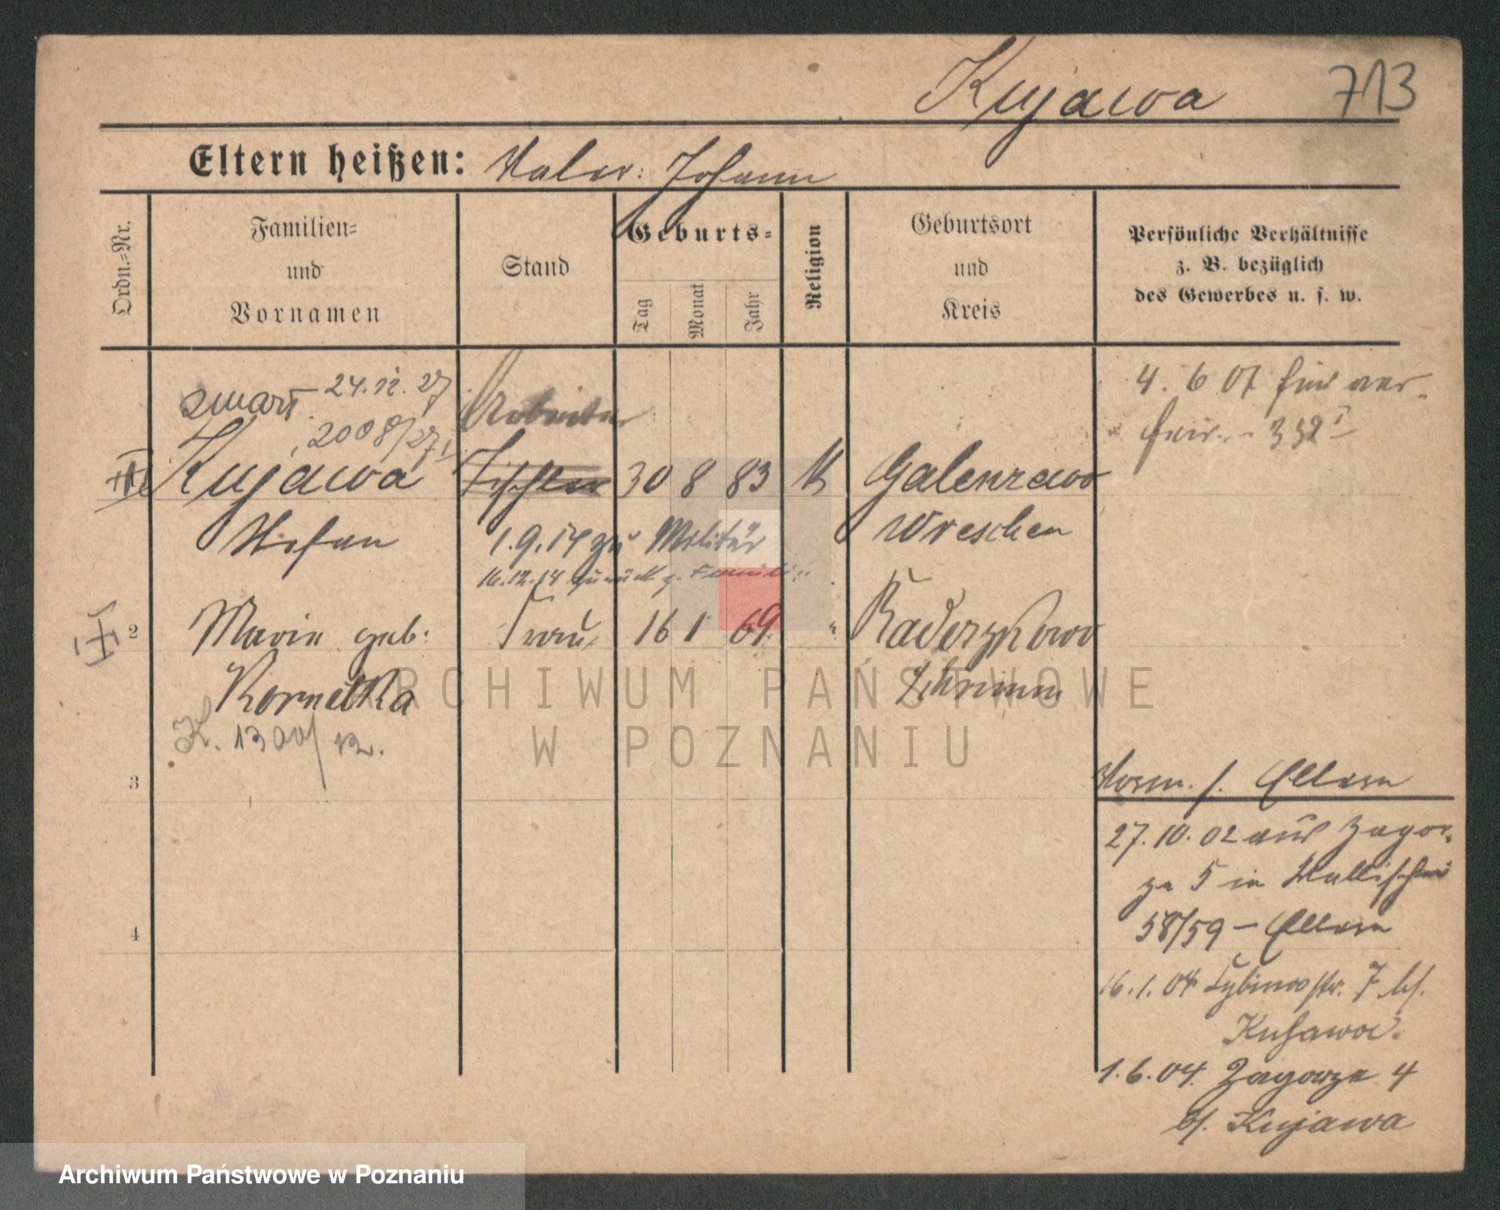 Kujawa 713
Eltern heißen: Johann
Ordn.-Nr.
Familien=
und
Vornamen
Stand
Geburts=
Tag
Monat
Jahr
Religion
Geburtsort
und
Kreis
Persönliche Verhältnisse
z. B. bezüglich
des Gewerbes u. s. w.
zmarł 24.12.27
2008/27
Kujawa
Stefan
Arbeiter
Tischler
30 8 83 K
1.9.14 zu Militär
16.12.14 zurück z. Familie
Wreschen
4. 6 07
2 Marie geb:
Kornetka
Frau
16 1 69 "
Schrimm
K. 1300/12.
3
Eltern
27.10.02 aus Zagor-
ze 5 in Wallischei
58/59 - Eltern
4
16.1.04 Tybinestr. 7 bs.
Kujawa.
1.6.04. Zagorze 4
bs. Kujawa
ARCHIWUM PAŃSTWOWE
W POZNANIU
Archiwum Państwowe w Poznaniu